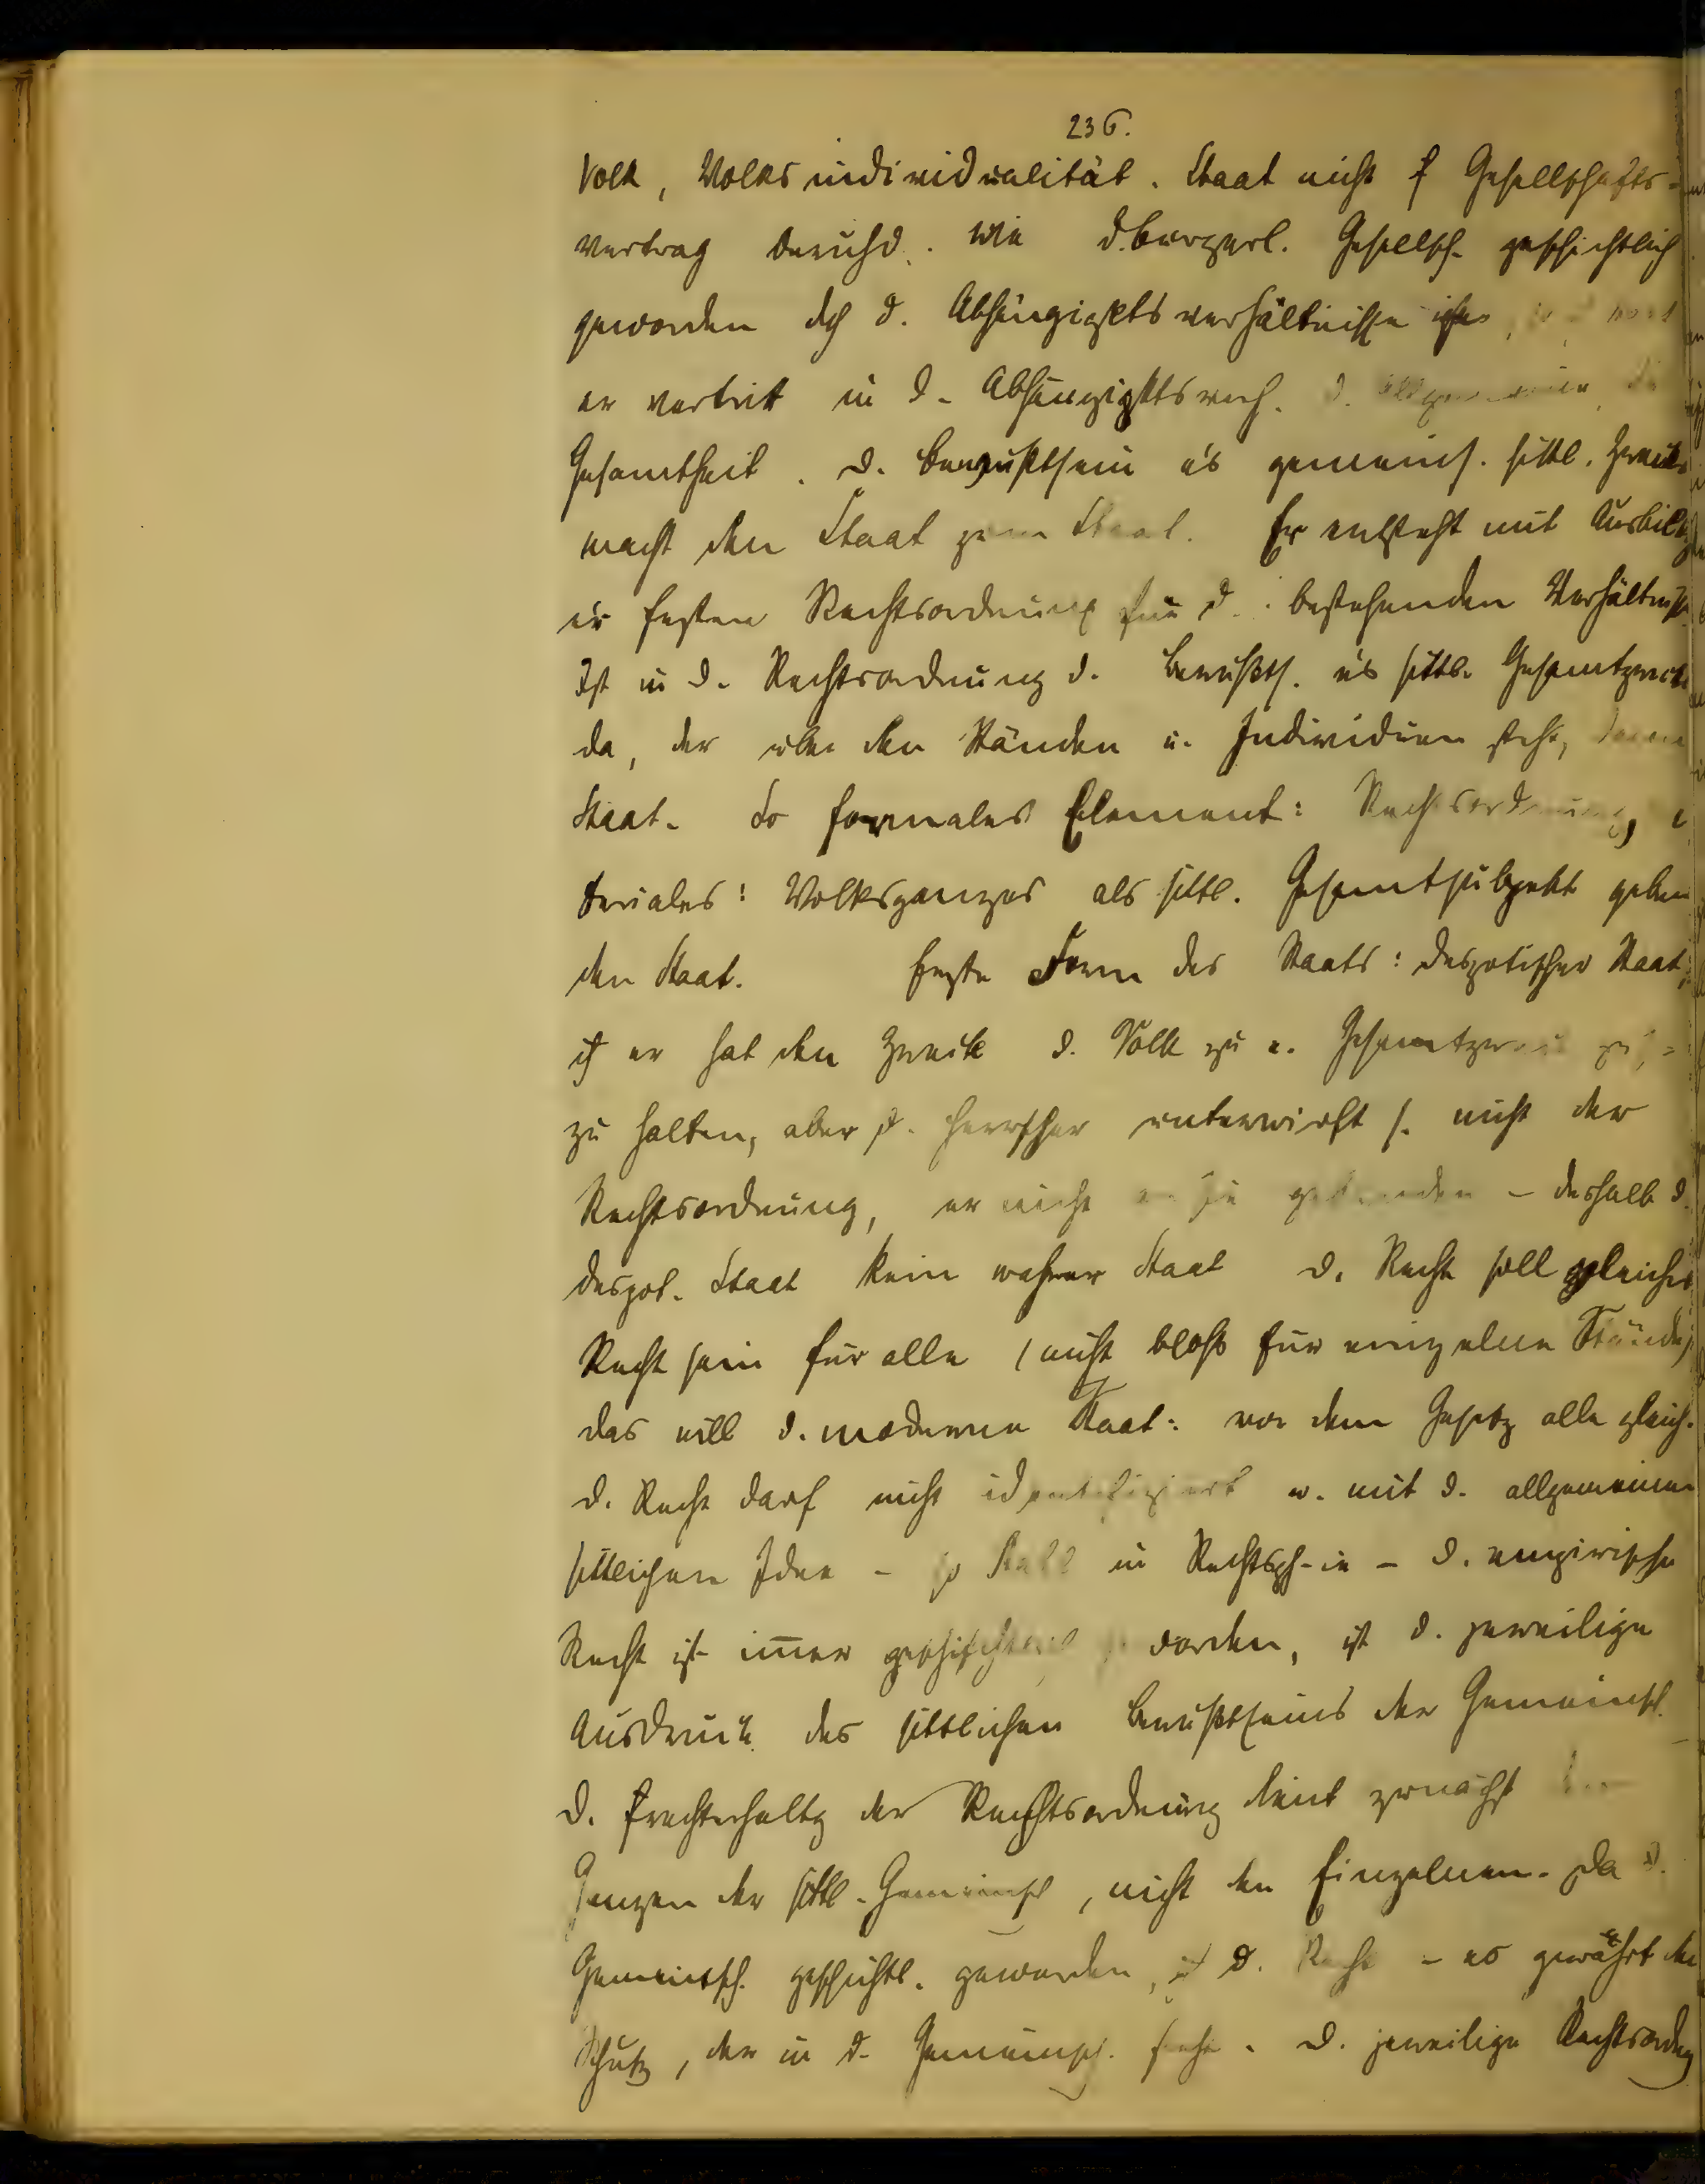 236.
Volk, Volksindividualität. Staat nicht f Gesellschafts-
vertrag beruhd. wie d. bürgerl. Gesellsch. geschichtlich
geworden dch d. Abhängigktsverhältnisse
er vertritt in d. Abhängigktsverh. d.
Gesamtheit. D. Bewußtsein e's gemeins. sittl. Zwecks
macht den Staat zum Staat. Er entsteht mit Ausbildg
e'r festen Rechtsordnung für d. bestehenden Verhältnisse.
Ist in d. Rechtsordnung d. Bewußts. e's sittl. Gesamtzwecks
da, der über den Ständen u. Individuen steht, dann
Staat. So formales Element: Rechtsordnung,
teriales: Volksganzes als sittl. Gesamtsubjekt geben
den Staat. Erste Form des Staats: despotischer Staat,
er hat den Zweck d. Volk zu e. Gesamtzweck
zu halten, aber d. Herrscher unterwirft s. nicht der
Rechtsordnung, er nicht an sie gebunden - deshalb d.
despot. Staat kein wahrer Staat D. Recht soll gleiches
Recht sein für alle (nicht bloß für einzelne Stände)
das will d. moderne Staat: vor dem Gesetz alle gleich.
D. Recht darf nicht identifiziert w. mit d. allgemeinen
sittlichen Idee - so Stahl in Rechtsph-ie - D. empirische
Recht ist im̄er geschichtlich geworden, ist d. jeweilige
Ausdruck des sittlichen Bewußtseins der Gemeinsch.
D. Frechterhaltg der Rechtsordnung dient zunächst
Ganzen der sittl. Gemeinsch, nicht den Einzelnen. Da d.
Gemeinsch. geschichtl. geworden, ist d. Recht - es gewährt den
Schutz, der in d. Gemeinsch. steht. D. jeweilige Rechtsordng